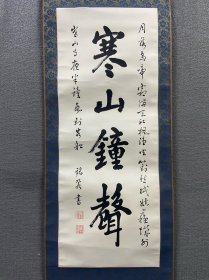 月落烏啼霜滿天江楓漁火對愁眠姑蘇城外
寒山鐘聲
寒山寺夜半鐘聲到客船
書